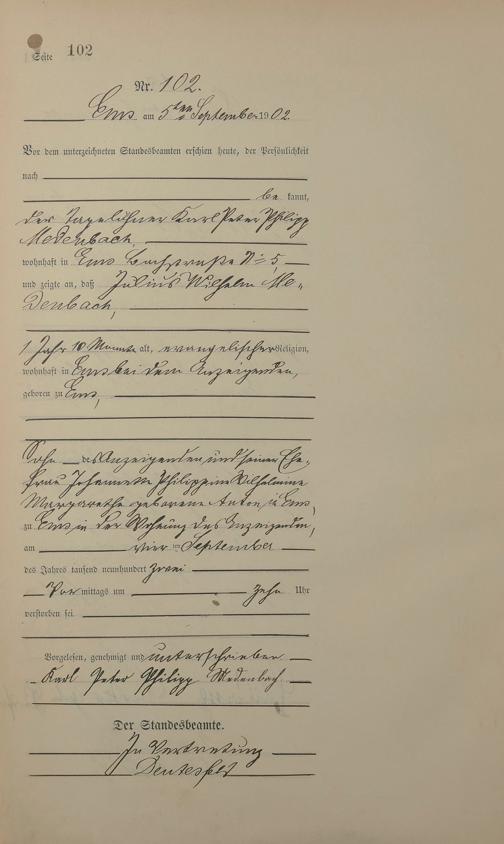 Seite 102
Nr. 102.
Ems am 5ten September 1902
Vor dem unterzeichneten Standesbeamten erschien heute, der Persönlichkeit
nach
be kannt,
der Tagelöhner Karl Peter Philipp
Medenbach,
wohnhaft in Ems Bachstraße No 5,
und zeigte an, daß Julius Wilhelm Me-
denbach,
1 Jahr 10 Monate alt, evangelischer Religion,
wohnhaft in Ems bei dem Anzeigenden,
geboren zu Ems,
Sohn des Anzeigenden und seiner Ehe-
frau Johannette Philippine Wilhelmine
Margarethe geborene Anton, in Ems,
zu Ems in der Wohnung des Anzeigenden,
am vier ten September
des Jahres tausend neunhundert zwei
Vor mittags um zehn Uhr
verstorben sei
Vorgelesen, genehmigt und unterschrieben
Karl Peter Philipp Medenbach
Der Standesbeamte.
In Vertretung